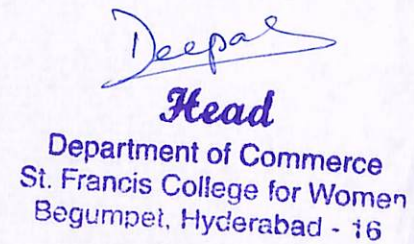 Deepa
Head
Department of Commerce
St. Francis College for Women
Begumpet, Hyderabad - 16